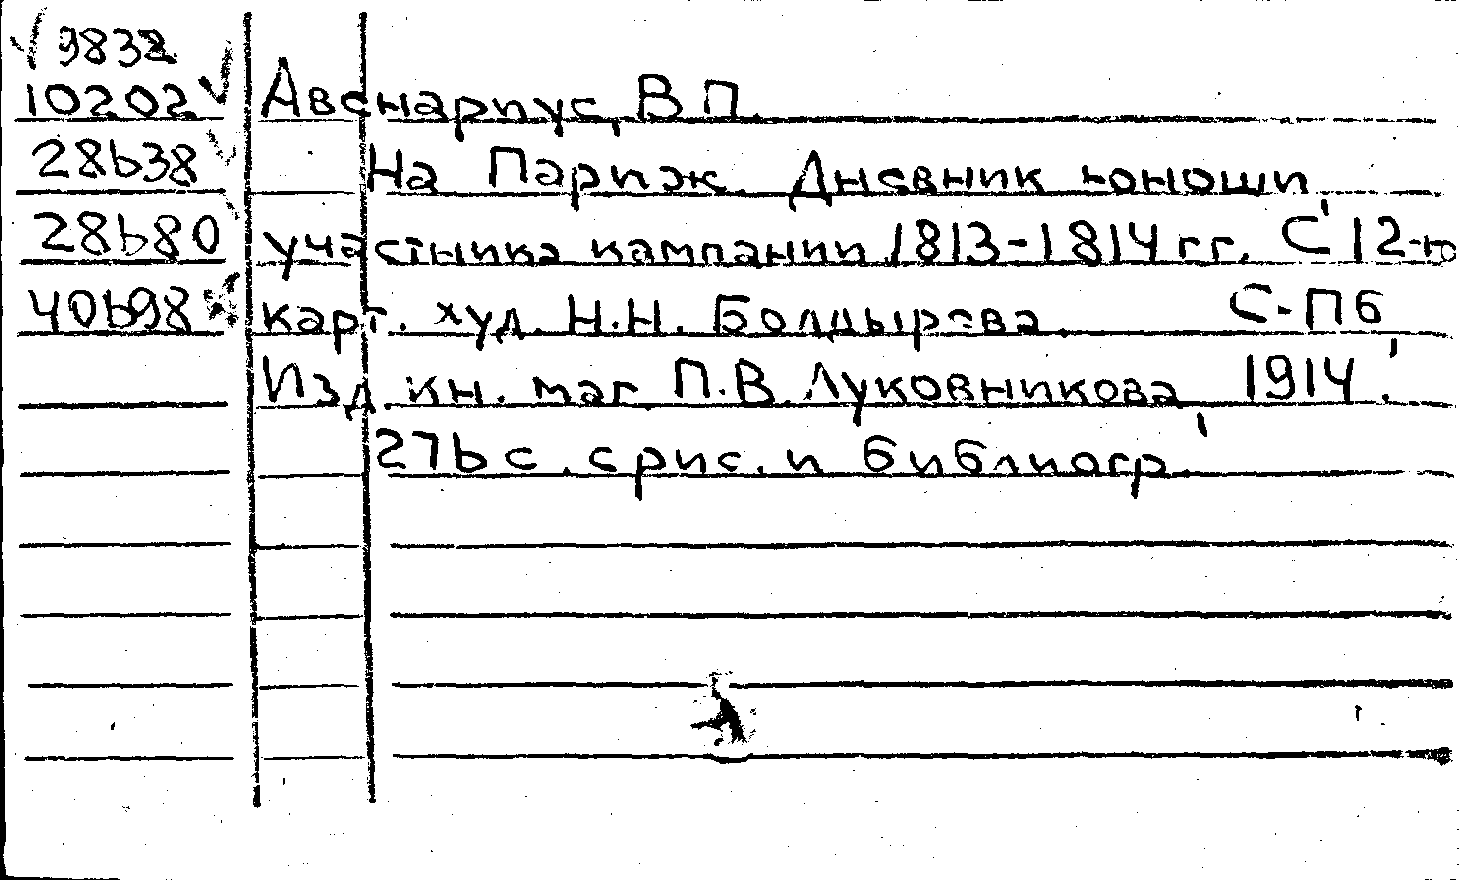 √ 9832
10202 √
28638 √
28680
40698
Авенариус, В.П.
На Париж. Дневник юноши,
участника кампании 1813-1814 гг. С 12-ю
карт. худ. Н.Н. Болдырева. С-Пб,
Изд. кн. маг. П.В. Луковникова, 1914.
276 с. с рис. и библиогр.